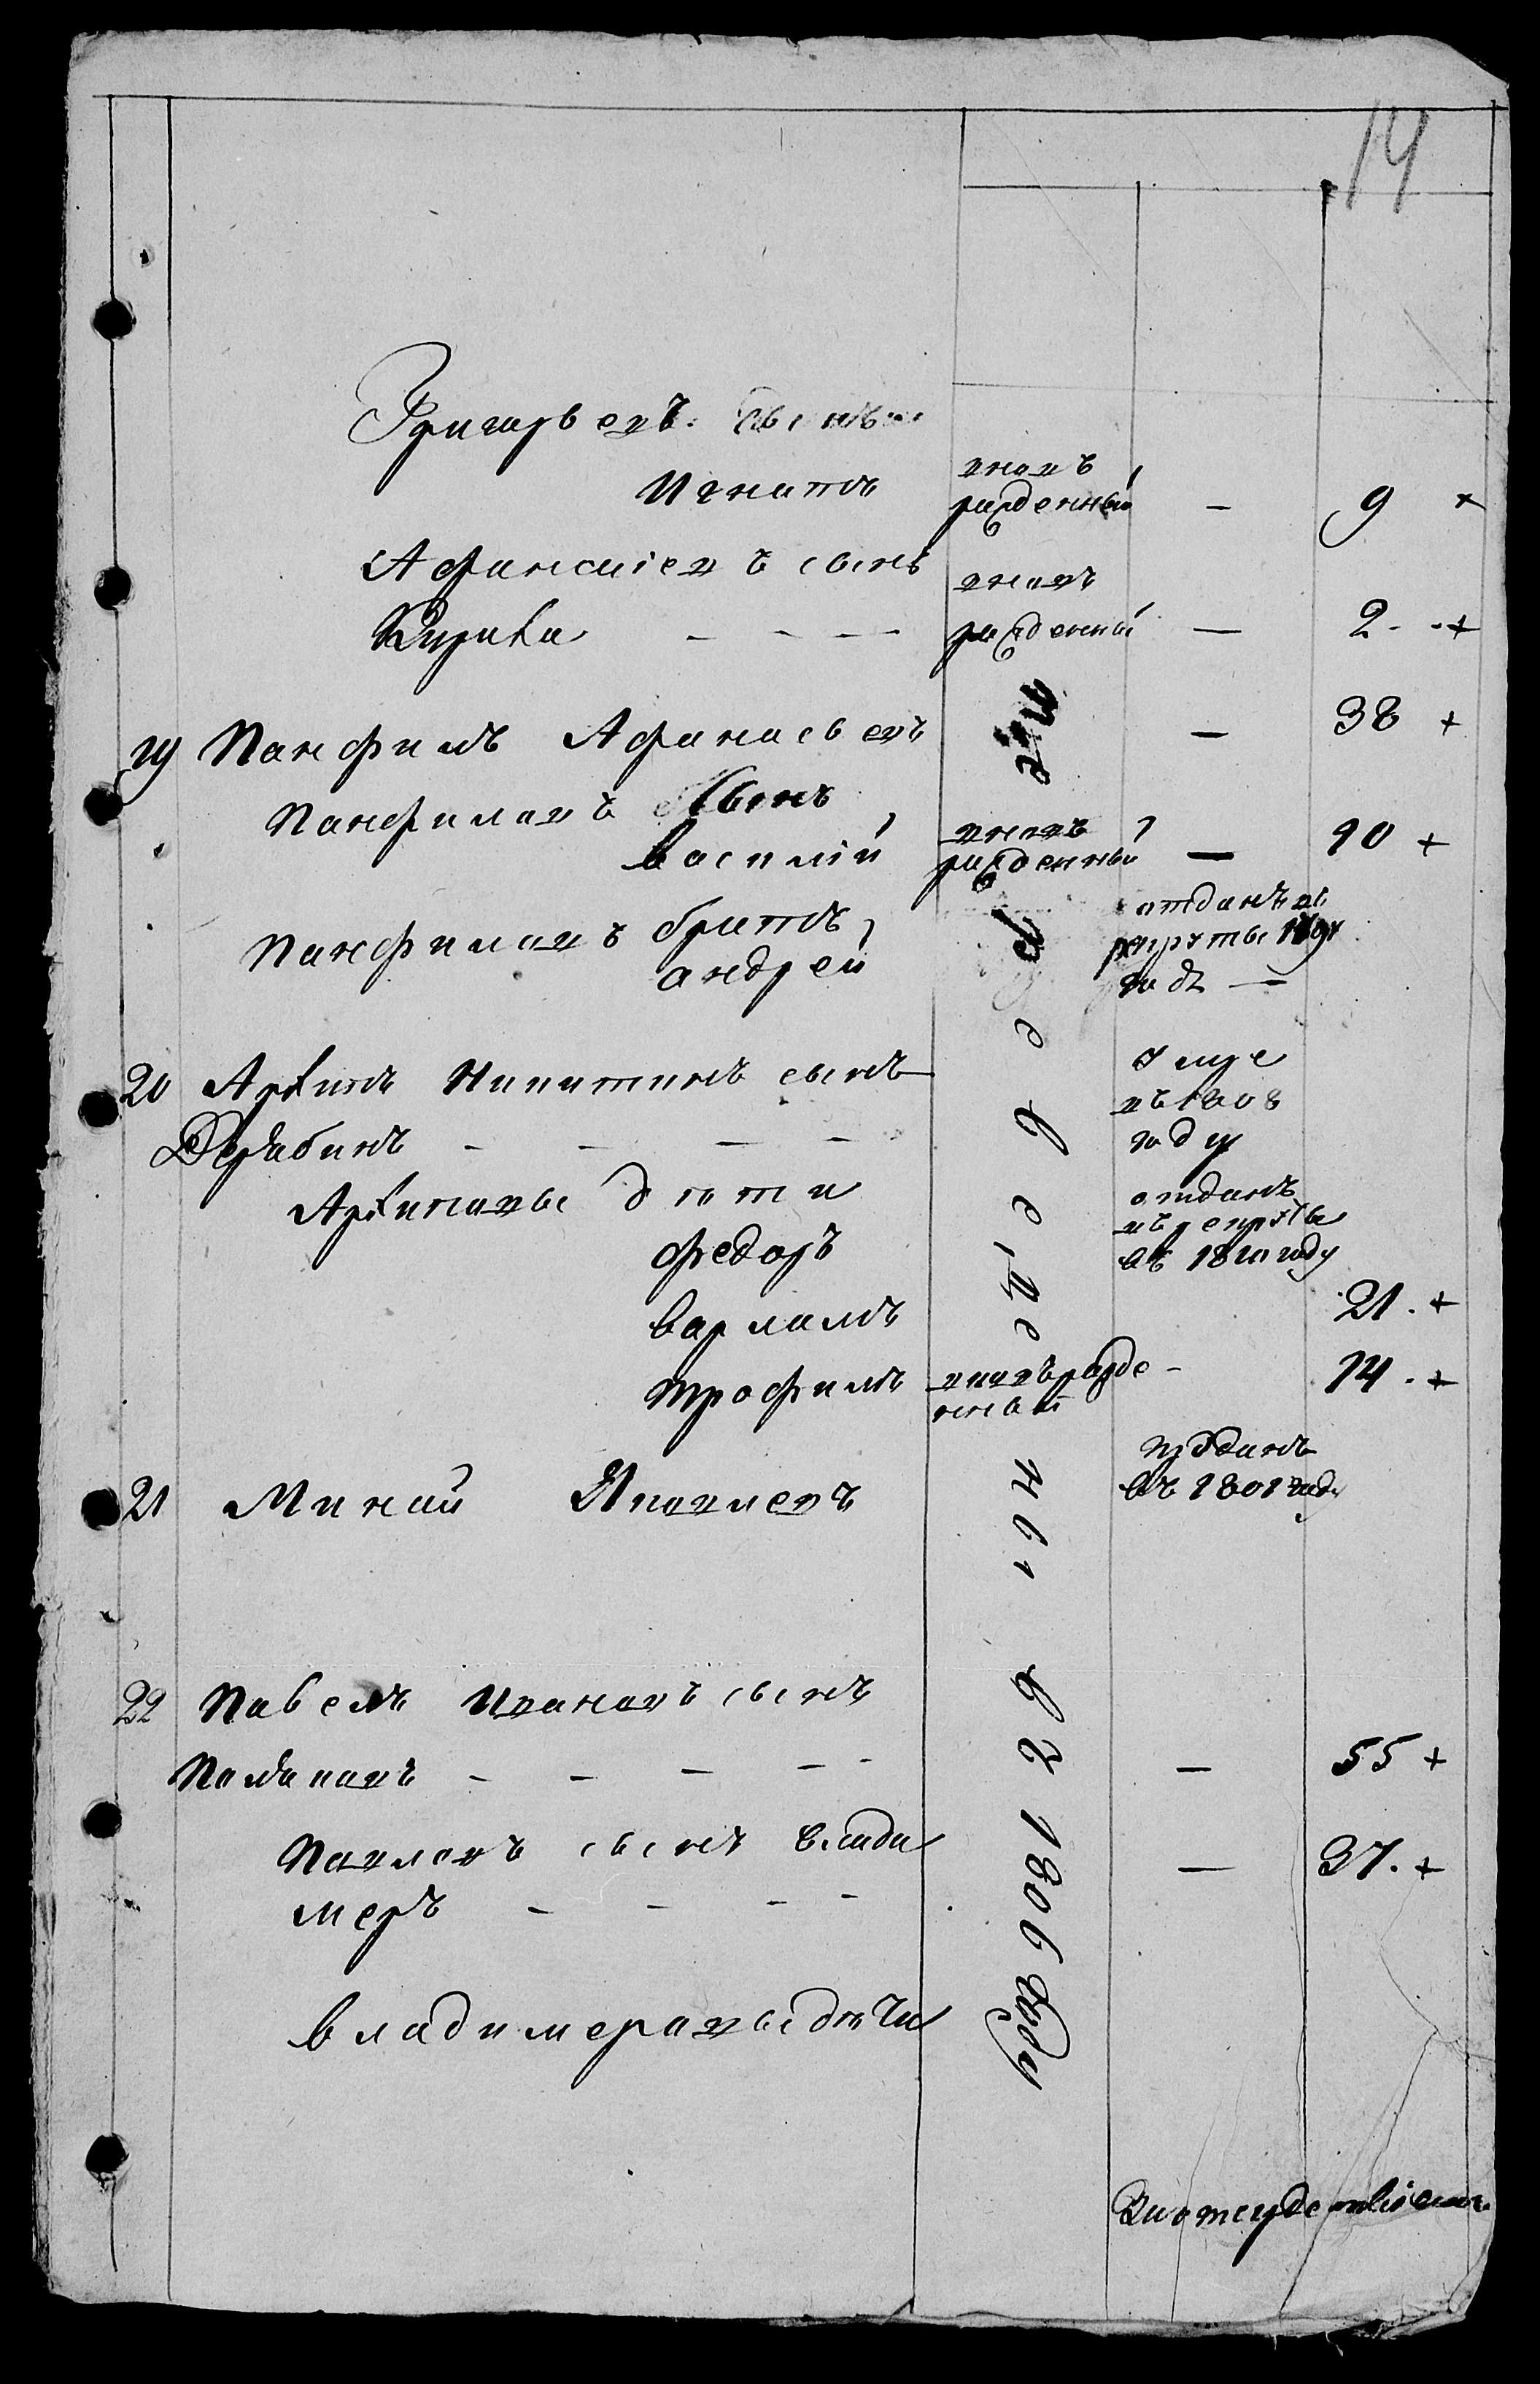 14
Григорьевъ сынъ
Игнатъ вновь рожденный — 9 +
Афанасіевъ сынъ вновь
Кирила рожденный — 2 +
19 Панфилъ Афанасьевъ — 38 +
Панфиловъ сынъ
Василій вновь рожденный — 10 +
Панфиловъ братъ
андрей
отданъ въ
рекруты
годѣ —
20 Архипъ Никитинъ сынъ
Дерябинъ — — — —
умре
въ 1808
году
Архиповы дѣти
федоръ
отданъ
въ рекруты
въ 1810 году
варламъ 21 +
трофимъ вновь рожде - 14 +
нный
21 Минай Яковлевъ
въ 1801 году
22 Павелъ Ивановъ сынъ
— — — — — — 55 +
Павловъ сынъ влади — 37 +
меръ — — — —
владимеровы дѣти
1806 году